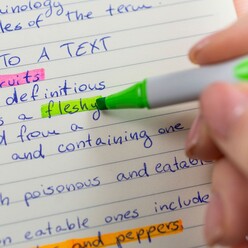 minology
les of the term.
TO A TEXT
cuits
definitions
s a fleshy
d from a
and containing one
h poisonous and eatable
n eatable ones include
and peppers